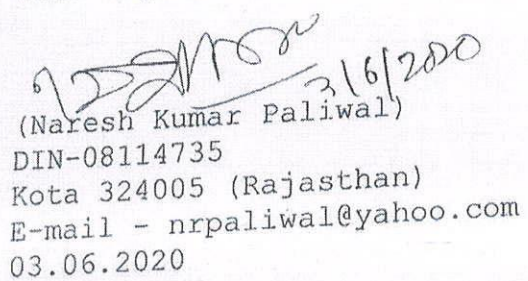 3/6/2020
(Naresh Kumar Paliwal)
DIN-08114735
Kota 324005 (Rajasthan)
E-mail - nrpaliwal@yahoo.com
03.06.2020